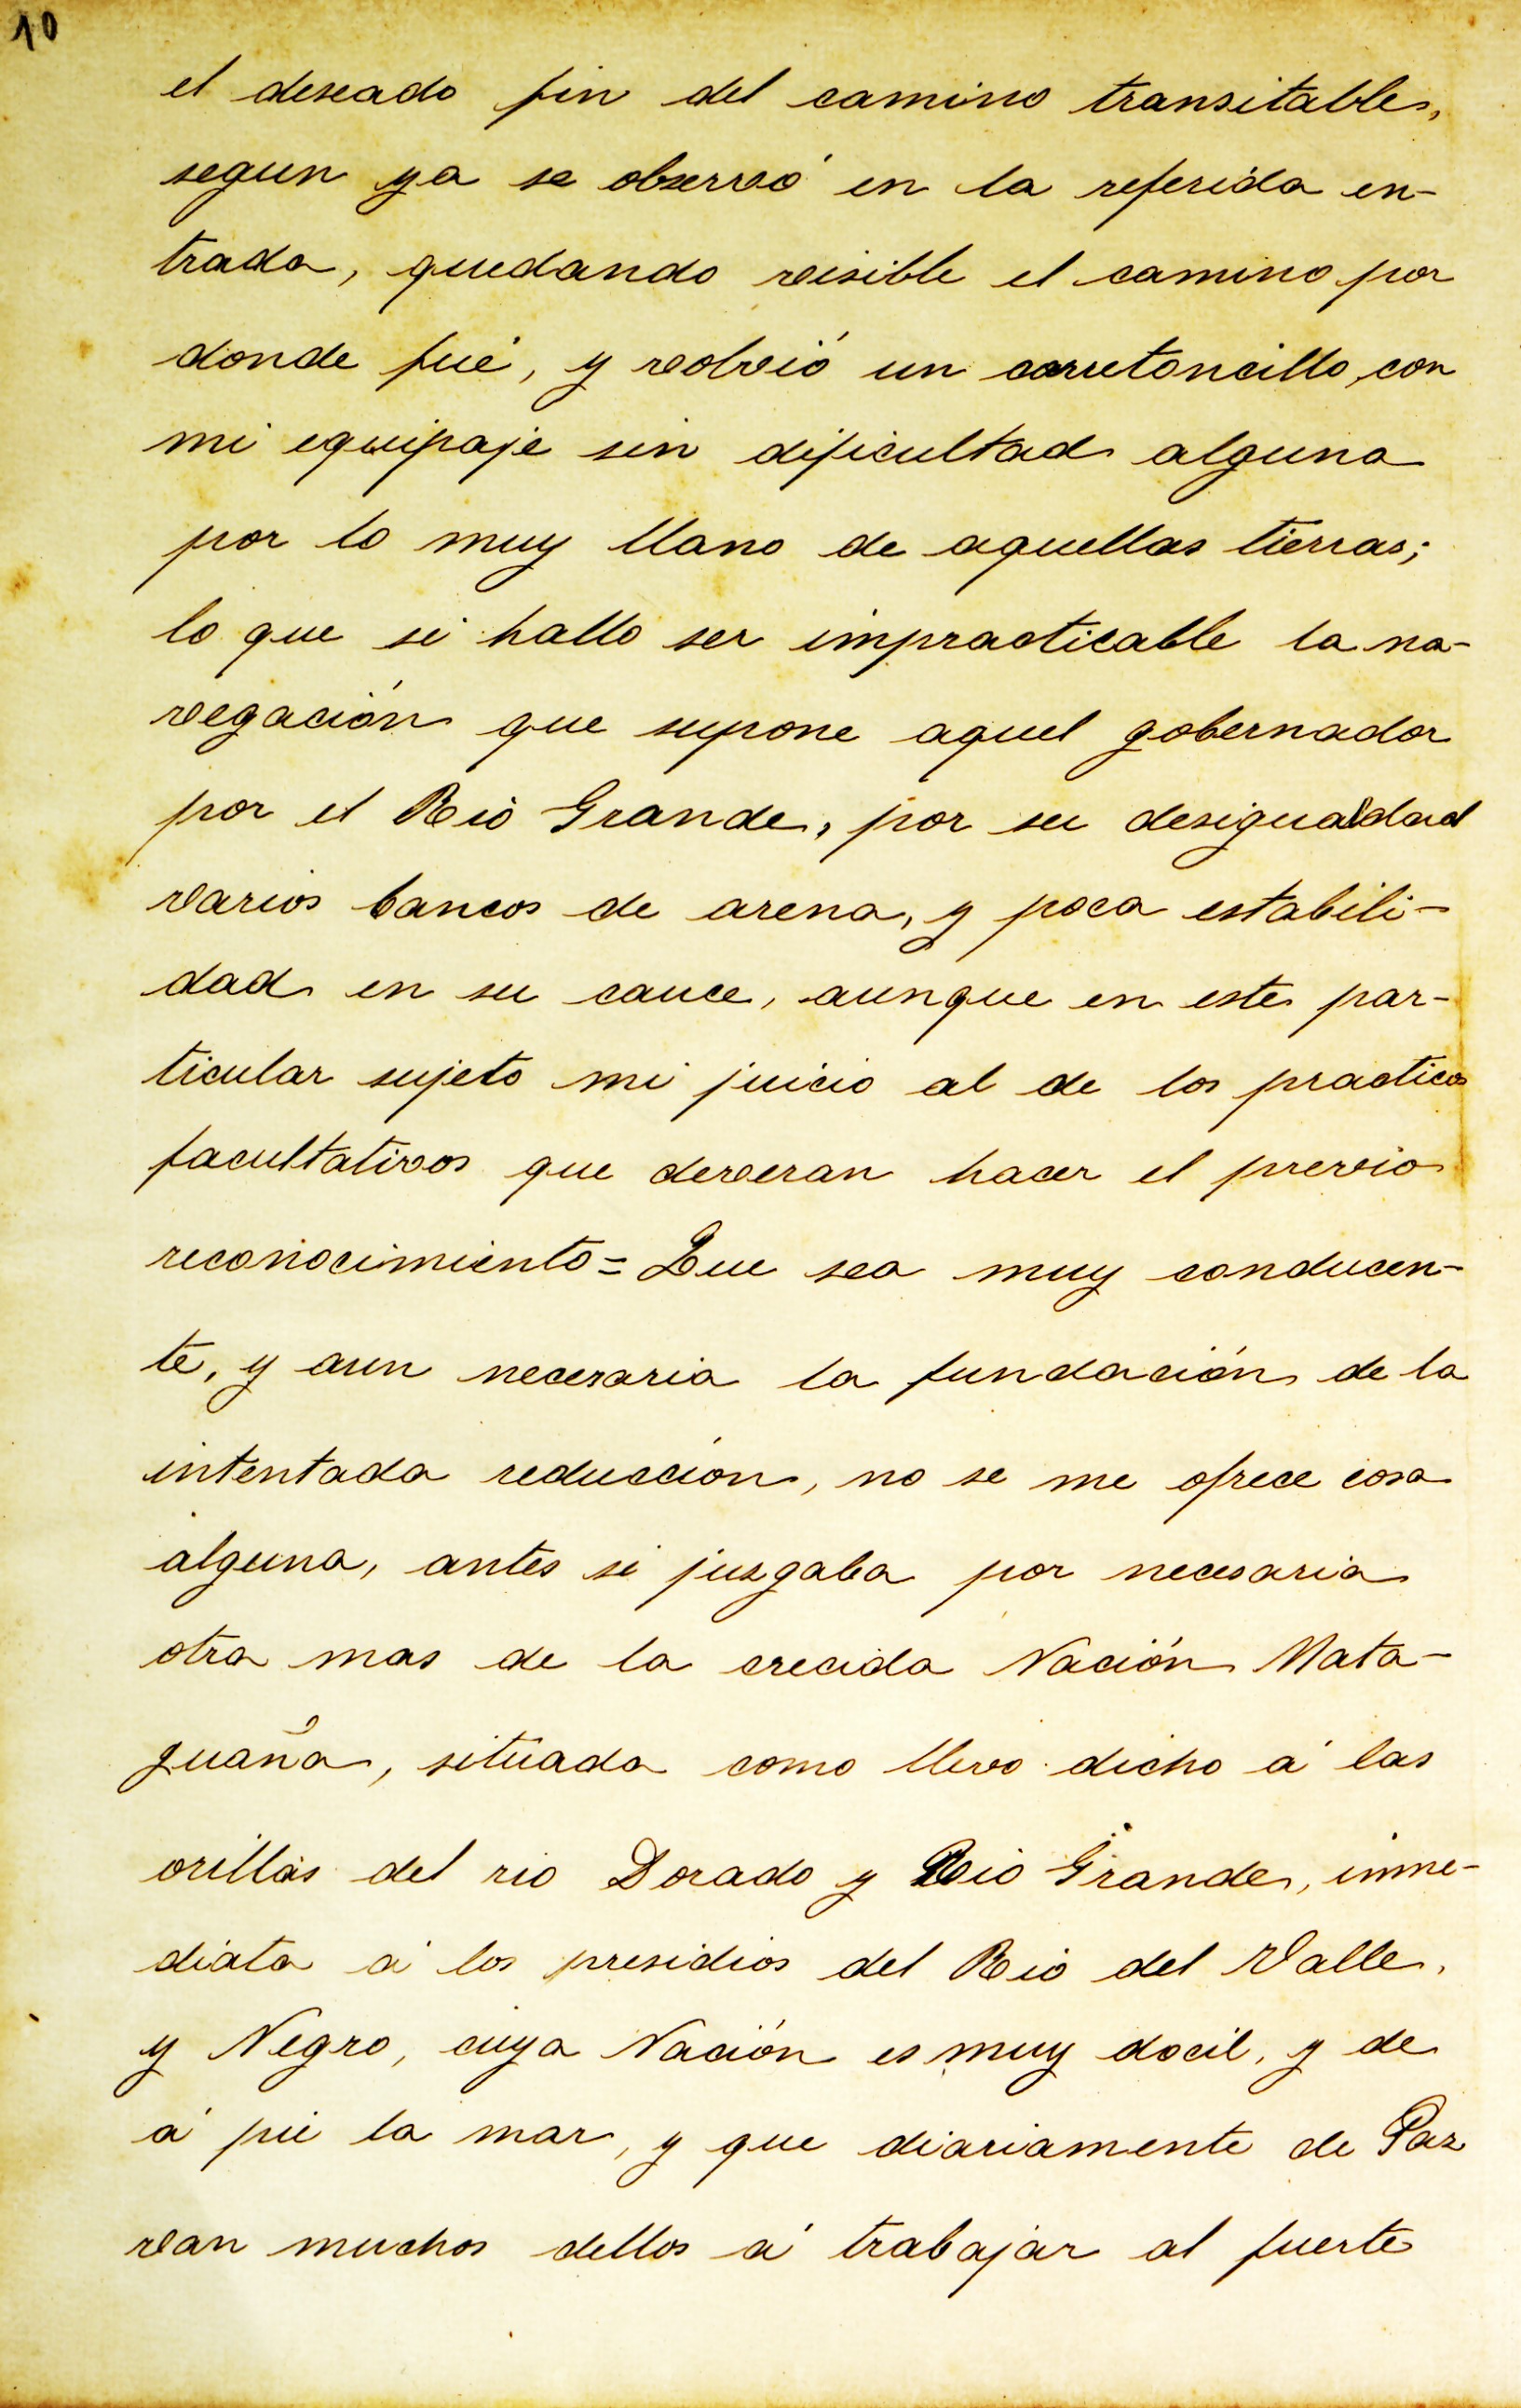 10
el deseado fin del camino transitable,
segun ya se observó en la referida en-
trada, quedando visible el camino por
donde fué, y volvió un carretoncillo, con
mi equipaje sin dificultad alguna
por lo muy llano de aquellas tierras;
lo que si hallo ser impracticable la na-
vegación que supone aquel gobernador
por el Rio Grande, por su desigualdad
varios bancos de arena, y poca estabili-
dad en su cauce, aunque en este par-
ticular sujeto mi juicio al de los practicos
facultativos que deveran hacer el previo
reconocimiento = Que sea muy conducen-
te, y aun necesaria la fundación de la
intentada reducción, no se me ofrece cosa
alguna, antes si juzgaba por necesaria
otra mas de la crecida Nación Mata-
guaña, situada como llevo dicho á las
orillas del rio Dorado y Rio Grande, inme-
diata á los presidios del Rio del Valle,
y Negro, cuya Nación es muy docil, y de
á pié la mar, y que diariamente de Paz
van muchos dellos á trabajar al fuerte